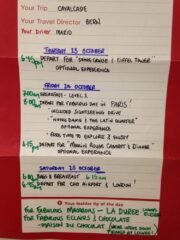 Your Trip CAVALCADE
Your Travel Director BERN
Your Driver MARIO
THURSDAY 23 OCTOBER
DEPART FOR "SEINE CRUISE & EIFFEL TOWER"
OPTIONAL EXPERIENCE
FRIDAY 24 OCTOBER
7:00am BREAKFAST - LEVEL 2
8:00 DEPART FOR FABULOUS DAY IN PARIS!
- INCLUDED SIGHTSEEING DRIVE
- "NOTRE DAME & THE LATIN QUARTER"
OPTIONAL EXPERIENCE
- FREE TIME TO EXPLORE & ENJOY
DEPART FOR "MOULIN ROUGE CABARET & DINNER"
OPTIONAL EXPERIENCE
SATURDAY 25 OCTOBER
BAGS & BREAKFAST
DEPART FOR CDG AIRPORT & LONDON!
Your insider tip of the day
FOR FABULOUS MACARONS - LA DUREE
FOR FABULOUS ECLAIRS & CHOCOLATE
- MAISON DU CHOCOLAT